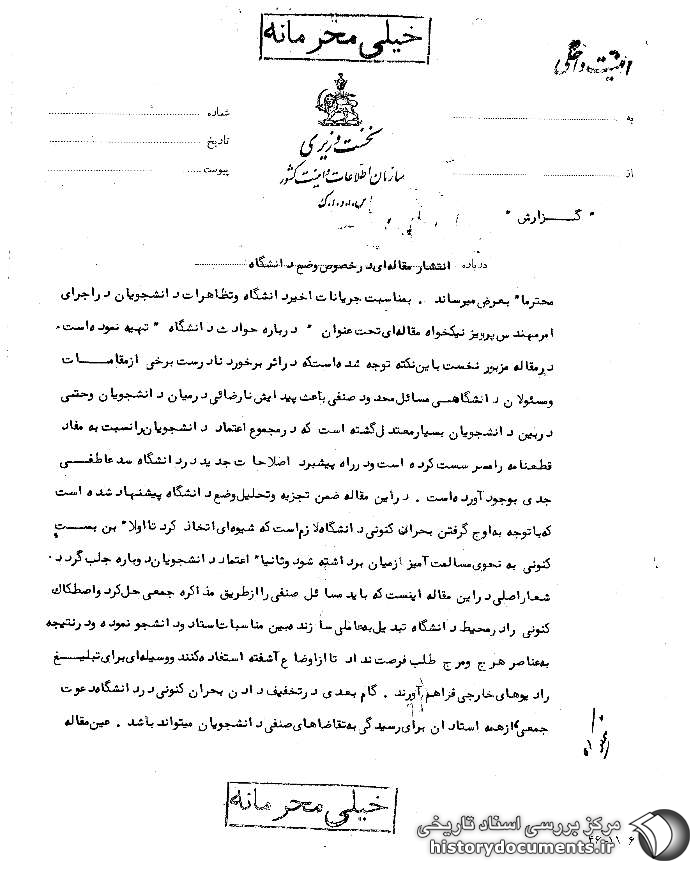 خیلی محرمانه
امنیت داخلی
نخست وزیری
سازمان اطلاعات و امنیت کشور
س.ا.و.ا.ک
به
از
شماره
تاریخ
پیوست
" گـــزارش "
درباره انتشار مقاله‌ای در خصوص وضع دانشگاه
محترما" بعرض میرساند . بمناسبت جریانات اخیر دانشگاه وتظاهرات دانشجویان در اجرای
امر مهندس پرویز نیکخواه مقاله‌ای تحت عنوان " درباره حوادث دانشگاه " تهیه نموده است .
در مقاله مزبور نخست باین نکته توجه شده است که در اثر برخورد نادرست برخی از مقامـــات
ومسئولان دانشگاهـی مسائل محدود صنفی باعث پیدایش نارضائی در میان دانشجویان وحتـی
در بین دانشجویان بسیار معتدل گشته است که در مجموع اعتماد دانشجویان را نسبت به مفاد
قطعنامه رامسر سست کرده است ودر راه پیشبرد اصلاحات جدید در دانشگاه سد عاطفـــی
جدی بوجود آورده است . در این مقاله ضمن تجزیه وتحلیل وضع دانشگاه پیشنهاد شده است
که با توجه به اوج گرفتن بحران کنونی دانشگاه لازم است که شیوه‌ای اتخاذ کرد تا اولا" بن بست
کنونی به نحوی مسالمت آمیز از میان برداشته شود وثانیا" اعتماد دانشجویان دوباره جلب گردد .
شعار اصلی در این مقاله اینست که باید مسائل صنفی را از طریق مذاکره جمعی حل کرد واصطکاک
کنونی را در محیط دانشگاه تبدیل به عاملی سازنده بین مناسبات استاد ودانشجو نموده ودر نتیجه
به عناصر هرج ومرج طلب فرصت نداد تا از اوضاع آشفته استفاده کنند ووسیله‌ای برای تبلیـــغ
رادیوهای خارجی فراهم آورند . گام بعدی در تخفیف دادن بحران کنونی در دانشگاه دعوت
جمعی از همه استادان برای رسیدگی به تقاضاهای صنفی دانشجویان میتواند باشد . عین مقاله
خیلی محرمانه
مرکز بررسی اسناد تاریخی
historydocuments.ir